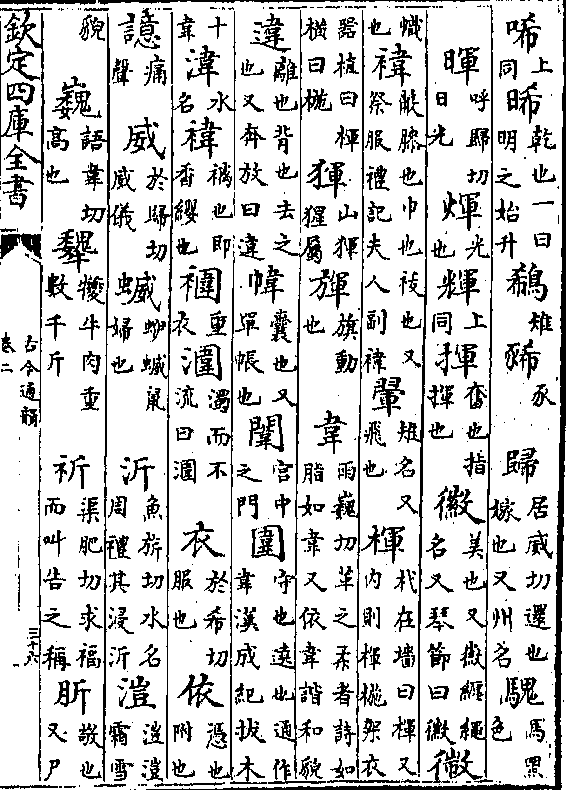 唏上同晞乾也一曰明之始升鵗雉豨豕歸居威切還也嫁也又州名騩馬黑色
暉呼歸切日光煇光也輝上同揮奮也指揮也徽美也又徽纆繩名又琴節曰徽微
幟也褘蔽膝也巾也祓也又祭服禮記夫人副褘翬雉名又飛也楎杙在墻曰楎又內則楎椸架衣
器植曰楎橫曰椸獋山獋猩屬㫎旗動也韋雨巍切革之柔者詩如脂如韋又依韋諧和貌
違離也背也去之也又奔放曰違幃囊也又單帳也闈宮中之門圍守也遶也通作韋漢成紀拔木
十韋湋水名褘褵也即香纓也重衣潿濁而不流曰潿衣於希切服也依憑也附也
譩痛聲威於歸切威儀蝛蛜蝛鼠婦也沂魚旂切水名周禮其浸沂溰溰溰霜雪
貌巍語韋切高也犩犪牛肉重數千斤祈渠肥切求福而叫告之稱肵敬也又尸
欽定四庫全書
古今通韻
卷二
三十六